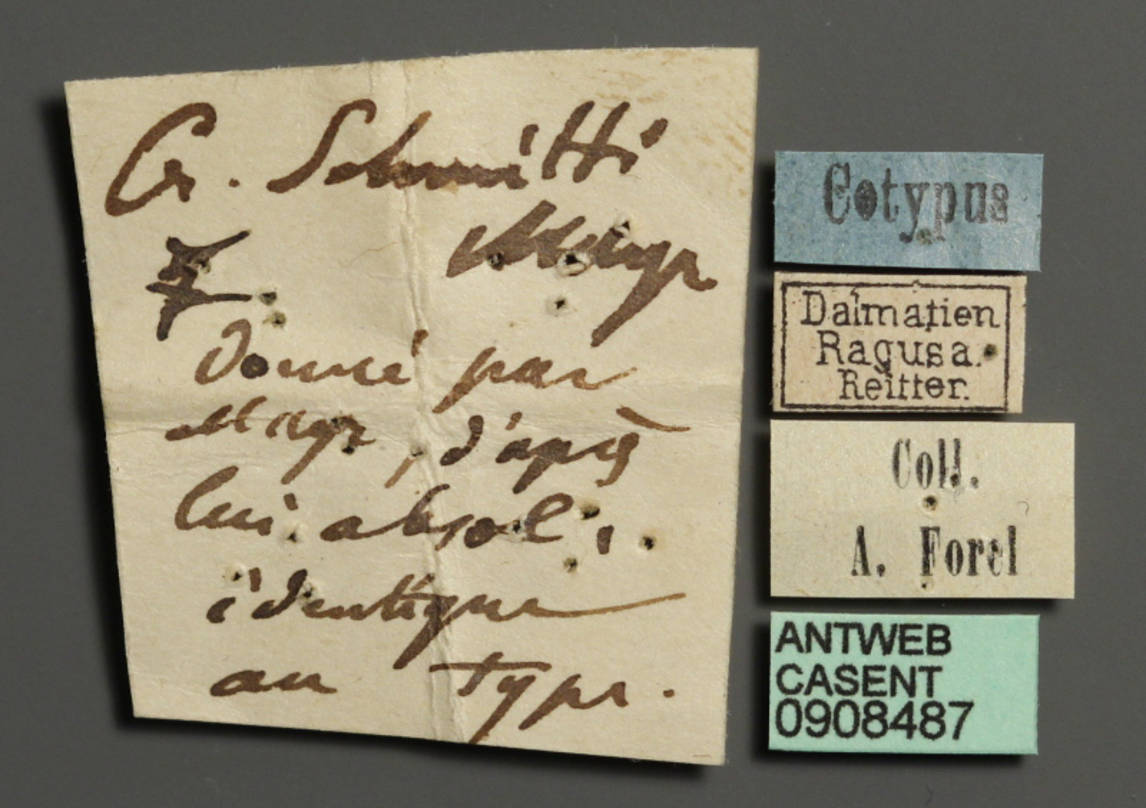 Cr. Schmitti
Mayr
☿
Donné par
Mayr, d'après
lui absolt.
identique
au type.
Cotypus
Dalmatien
Ragusa.
Reitter.
Coll.
A. Forel
ANTWEB
CASENT
0908487